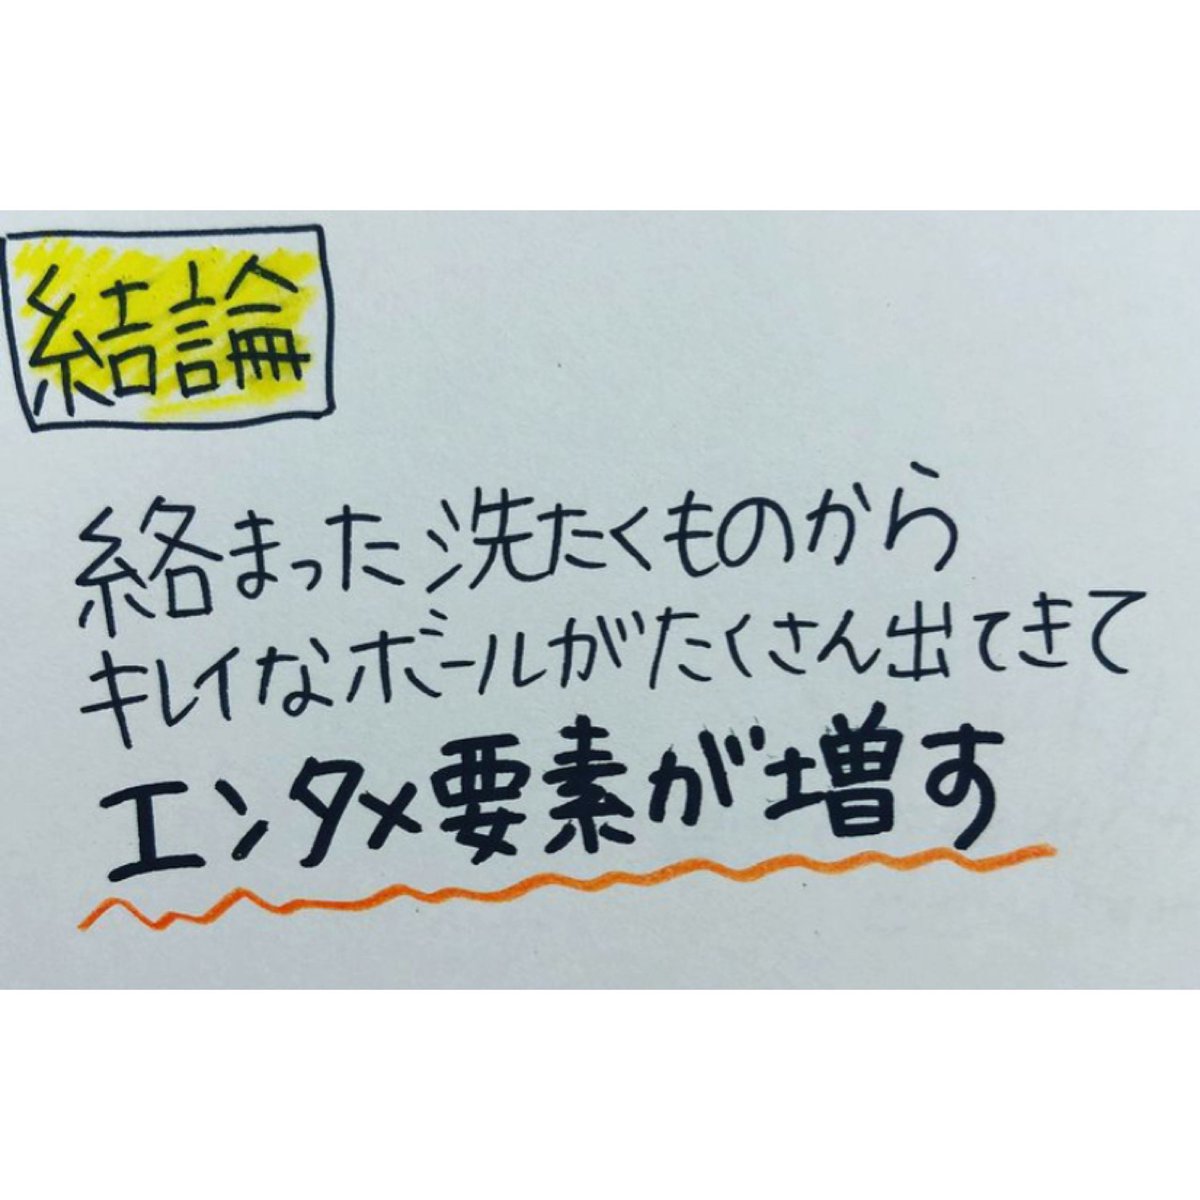 結論
絡まった洗たくものから
キレイなボールがたくさん出てきて
エンタメ要素が増す